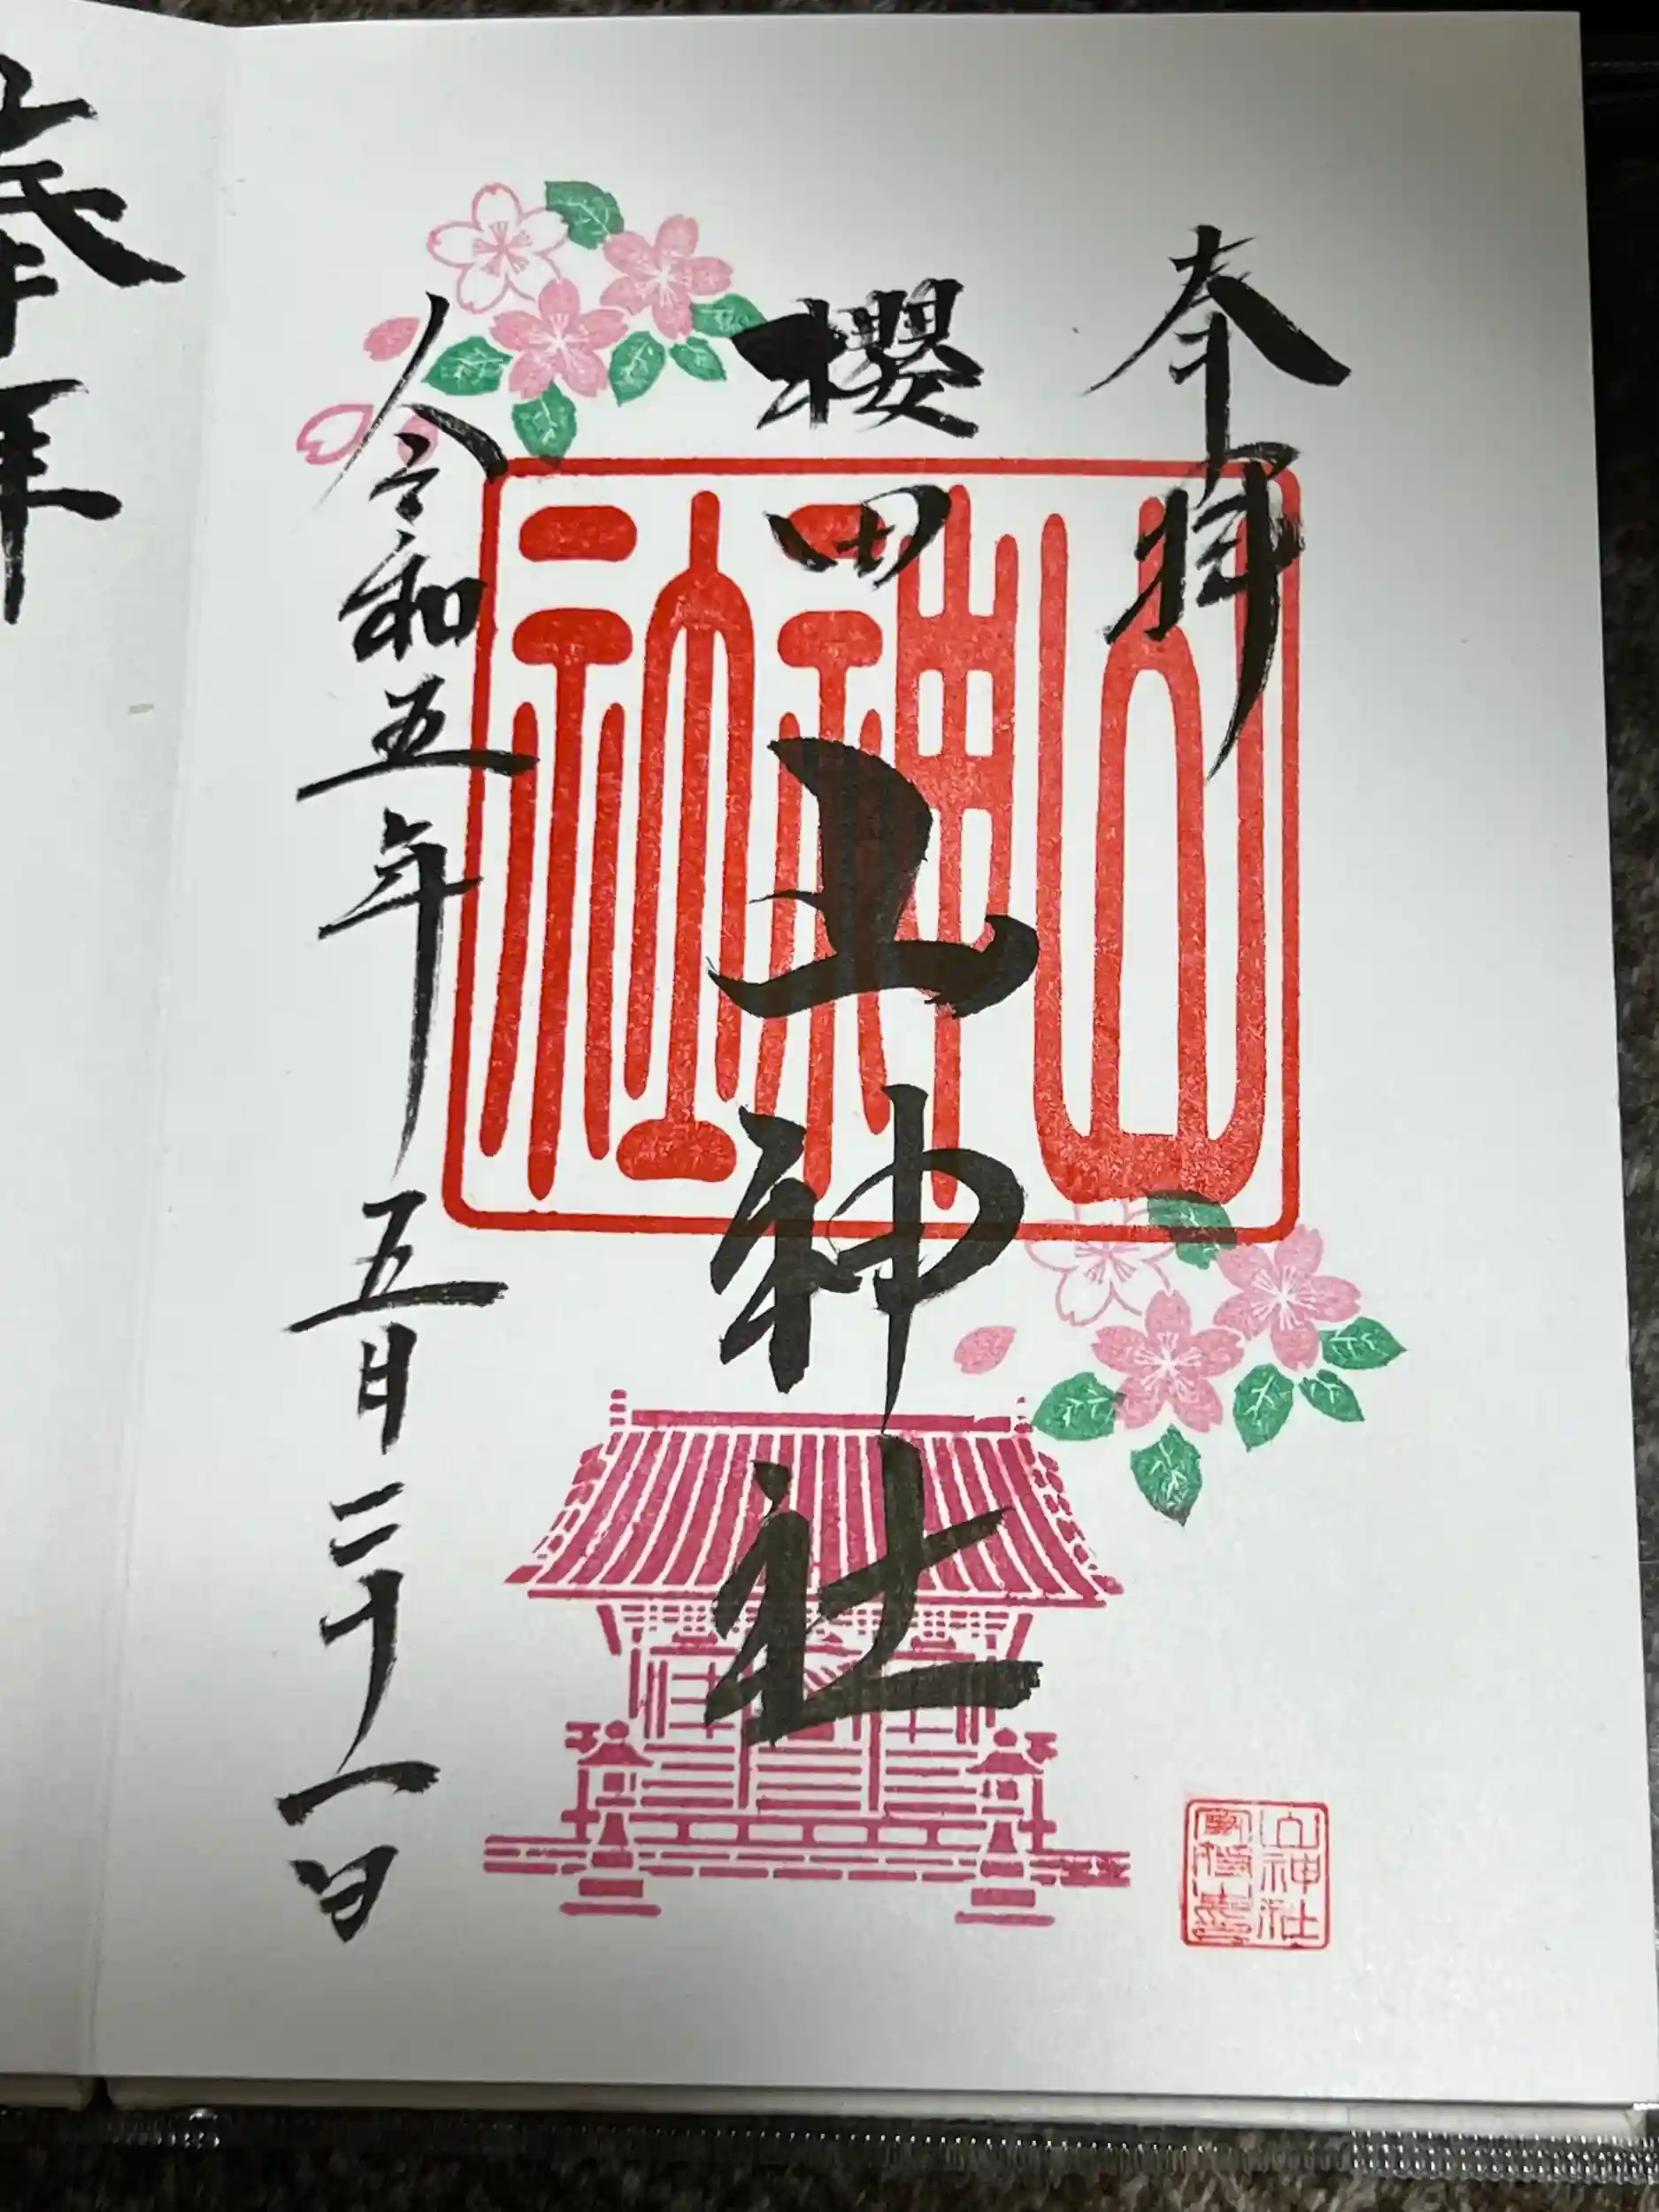 奉拝
櫻田
山神社
令和五年五月二十一日
山神社
山神社
奉拝